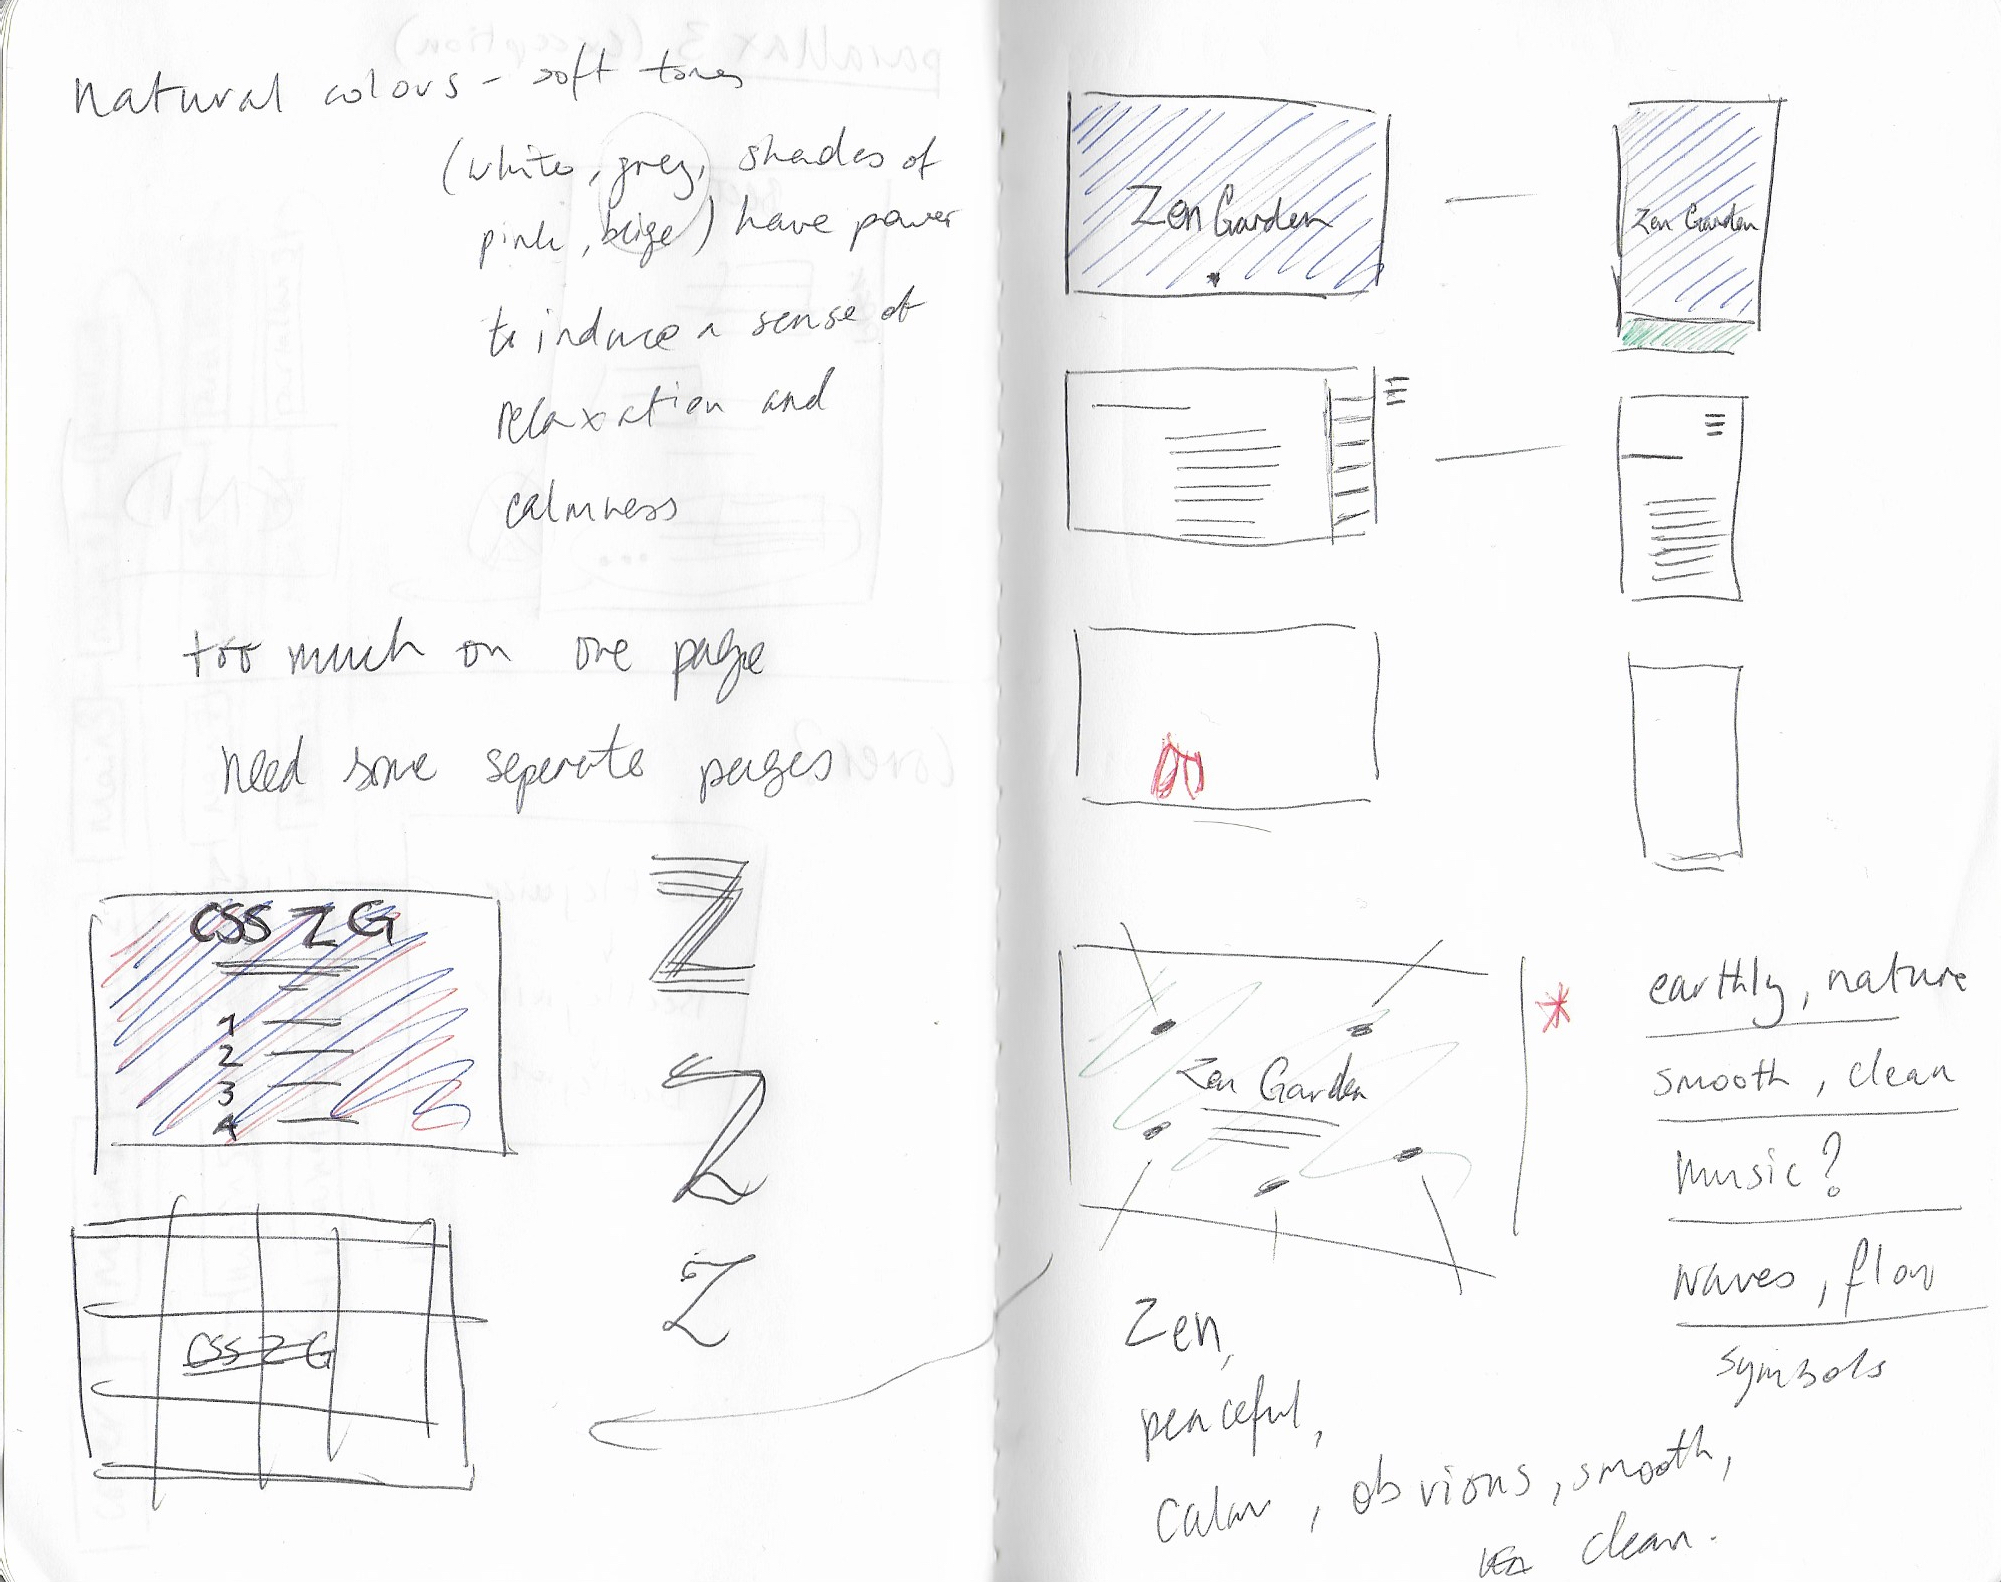 natural colors - soft tones
(white, grey, shades of
pink, beige) have power
to induce a sense of
relaxation and
calmness
too much on one page
need some seperate pages
CSS Z G
1
2
3
4
CSS Z G
Z
Z
Z
Zen Garden
Zen Garden
Zen Garden
* earthly, nature
smooth, clean
music?
waves, flow
symbols
Zen,
peaceful,
calm, obvious, smooth,
clean.